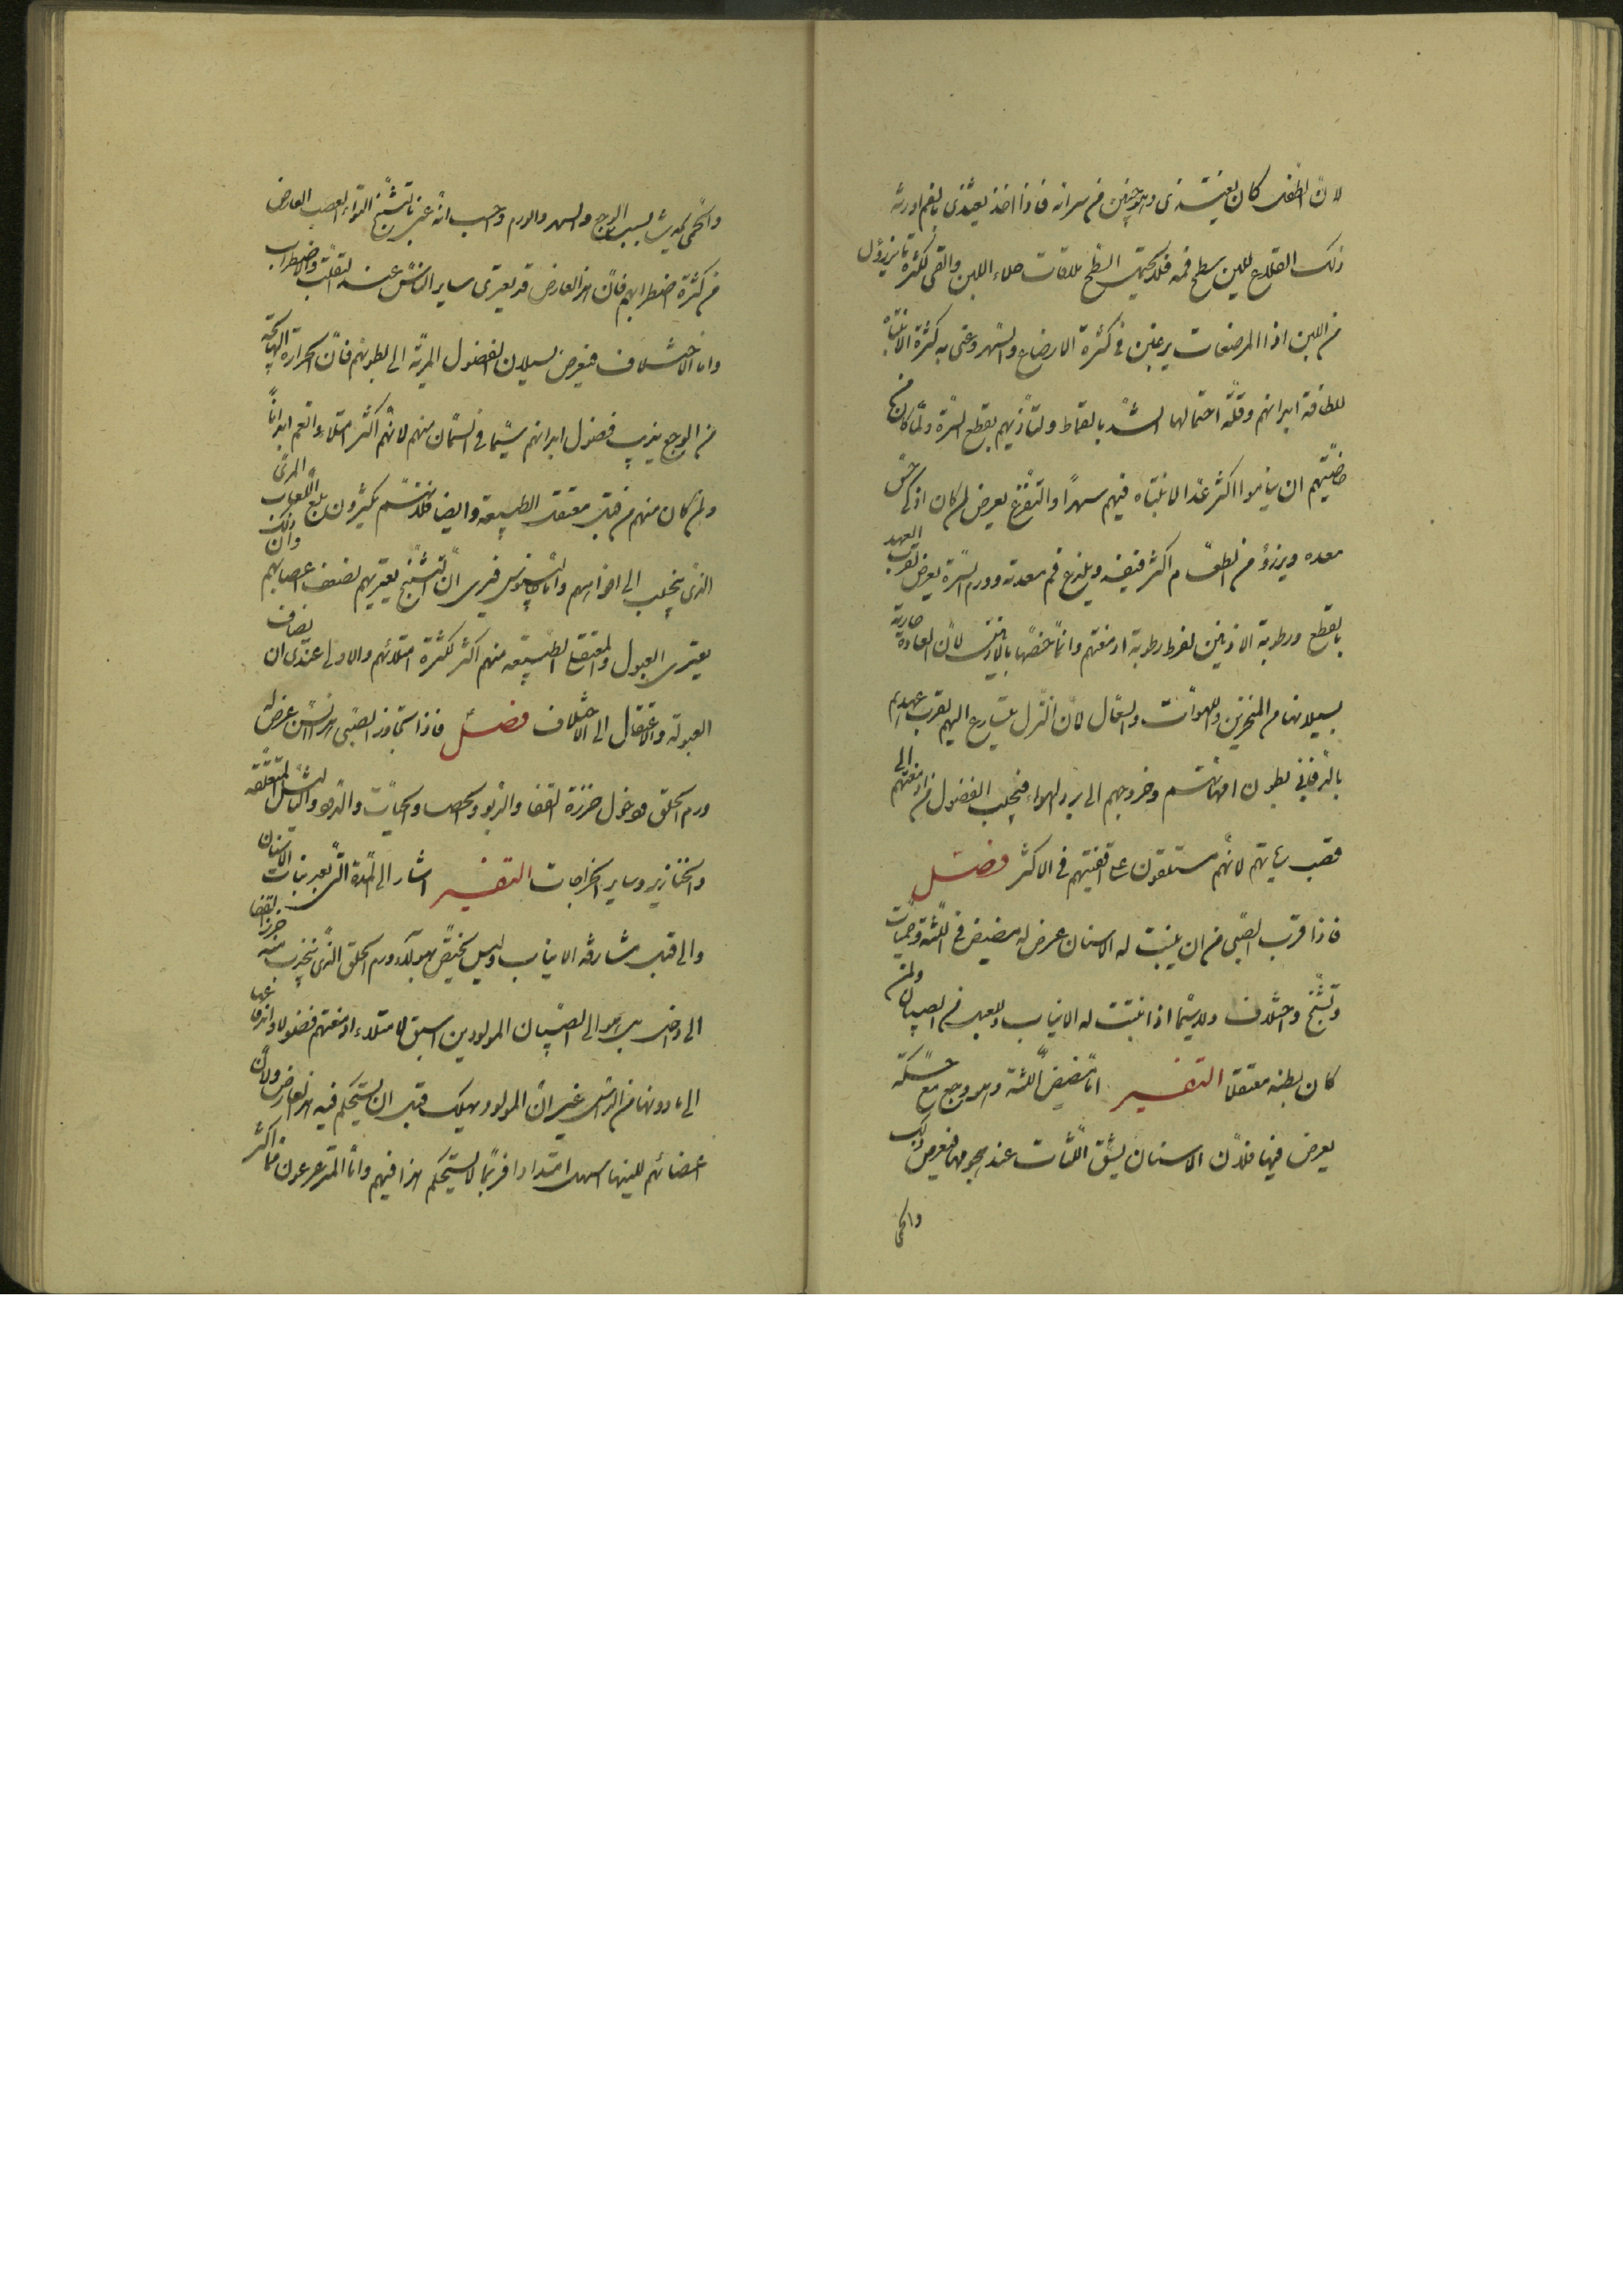 لان الطفل كان يغتذى وهو جنين من سرته فاذا اخذ يغتذى بالفم اورثه
ذلك القلاع للين سطح فمه فلا يحتمل السطح ملاقات جلاء اللبن والقى لكثرة ما يزرؤل
من اللبن اذا المرضعات يرغبن فى كثرة الارضاع والسهر وعنى به كثرة الانتباه
للطافة ابدانهم وقلة احتمالها الشد بالقماط ولتأذيهم بقطع السرة ولما كان من
خاصيتهم ان يناموا اكثر عد الانتباه فيهم سهرا والتفزع يعرض لمن كان اذكى حس
معده ويزرؤ من الطعام اكثر فيفسد ويلذع فم معدته وورم السرة يعرض لقرب العهد
بالقطع ورطوبة الاذنين لفرط رطوبة ادمغتهم وانما خصها بالاذنين لان العادة جارية
بسيلانها من المنخرين واللهوات والسعال لان النزل يتسارع اليهم لقرب عهدهم
بالدفء فى بطون امهاتهم وخروجهم الى برد الهواء فتجلب الفضول من ادمغتهم الى
قصب رياتهم لانهم مستلقون على اقفيتهم فى الاكثر فصل
فاذا قرب الصبى من ان ينبت له الاسنان عرض له مضيض فى اللثة وحميات
وتشنج واختلاف ولاسيما اذا نبتت له الانياب وللعبل من الصبيان ولمن
كان بطنه معتقلا التفسير اما مضيض اللثة وهو وجع مع حكة
يعرض فيها فلان الاسنان يشق اللثات عند نجومها فيعرض ذلك
والحمى
والحمى يحدث بسبب الوجع والسهر والورم وحسب انه عنى بالتشنج التواء العصب العارض
من كثرة اضطرابهم فان هذا العارض قد يعترى ساير الناس عند التقلب والاضطراب
واما الاختلاف فيعرض لسيلان الفضول المرية الى بطونهم فان الحرارة الهائجة
من الوجع يذيب فضول ابدانهم سيما فى السمان منهم لانهم اكثر امتلاء وانعم ابدانا
ولمن كان منهم من قبل معتقل الطبيعة وايضا فلانهم يكثرون بلع اللعاب المرى
الذى ينجلب الى افواههم واما جالينوس فيرى ان التشنج يعتريهم لضعف اعصابهم وان ذلك
يعترى العبول والمعتقل الطبيعة منهم اكثر لكثرة امتلائهم والاولى عندى ان يضاف
العبولة والاعتقال الى الاختلاف فصل فاذا تجاوز الصبى هذا السن عرض له
ورم الحلق ودخول خرزة القفا والربو والحصا والحيات والدود والثآليل المتعلقة
والخنازير وساير الخراجات التفسير اشار الى المدة التى بعد نبات الاسنان
والى قبل مشارفة الانبات وليس يختص بهؤلاء ورم الحلق الذى ينجذب منه خرزة القفا
الى داخل بل هو الى الصبيان المولودين اسبق لامتلاء ادمغتهم فضولا واندفاعها
الى ما دونها من الراس غير ان المولود يهلك قبل ان يستحكم فيه هذا العارض ولان
اعضائهم للينها اسهل امتدادا فربما لا يستحكم هذا فيهم واما المترعرعون فما اكثر